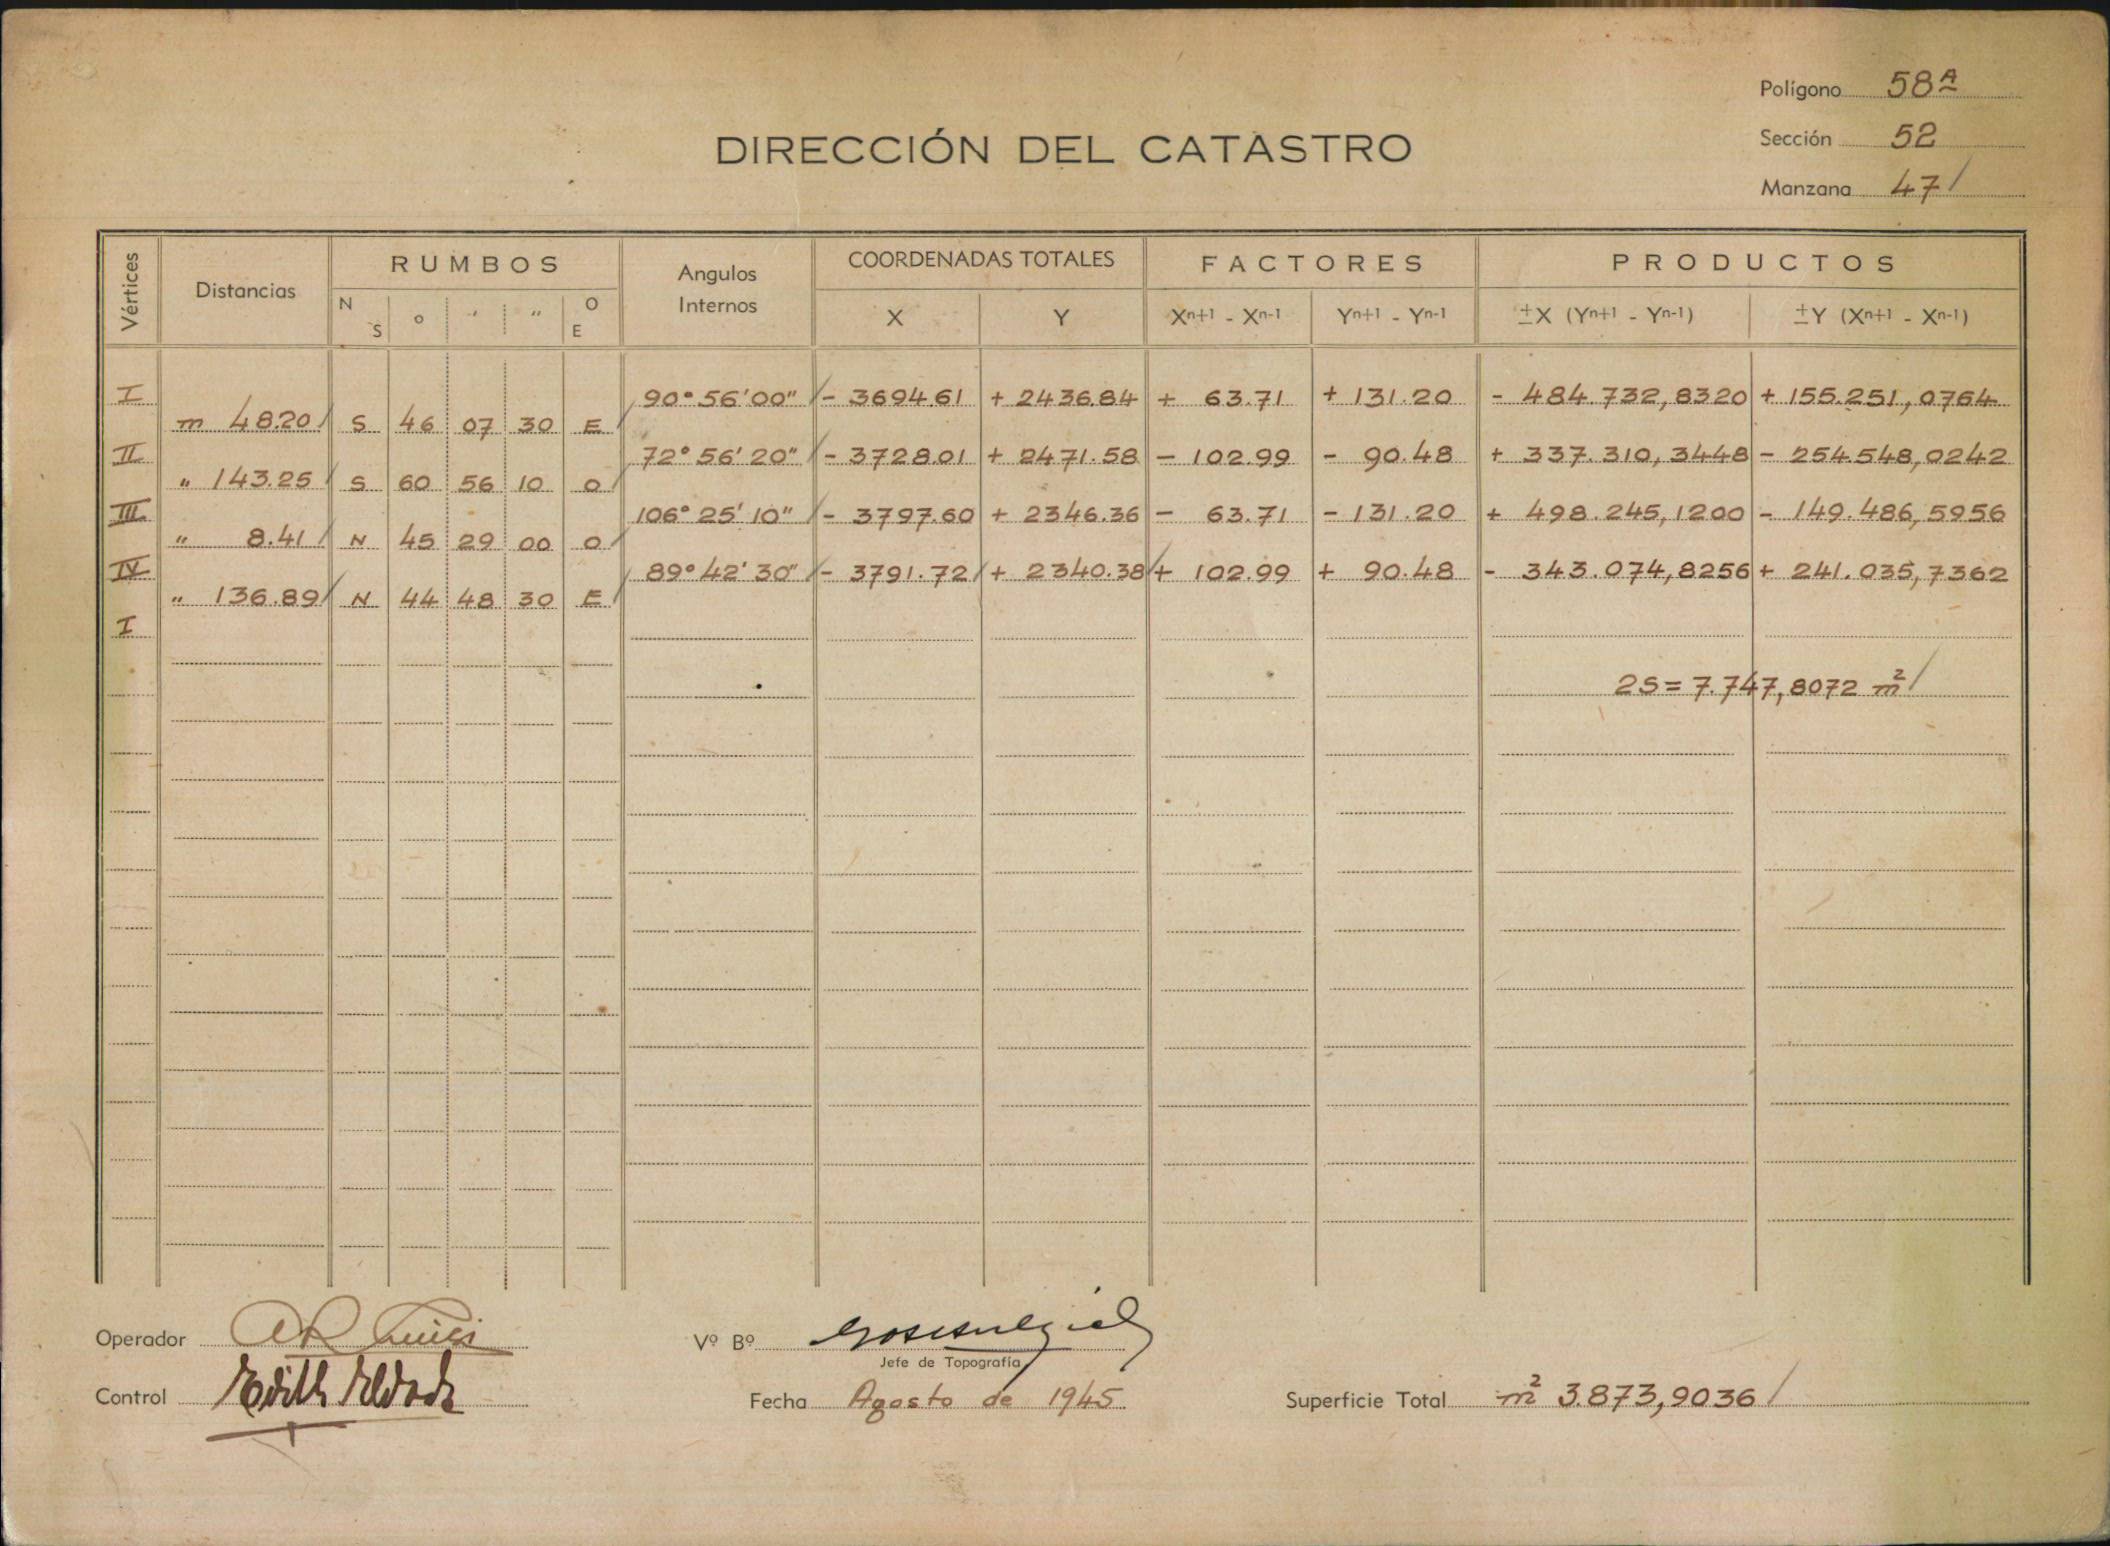 Polígono 58A
Sección 52
Manzana 47/
DIRECCIÓN DEL CATASTRO
Vértices Distancias RUMBOS Angulos Internos COORDENADAS TOTALES FACTORES PRODUCTOS
N S ° ′ ″ O E X Y Xn+1 - Xn-1 Yn+1 - Yn-1 ±X (Yn+1 - Yn-1) ±Y (Xn+1 - Xn-1)
I 90° 56' 00" / - 3694.61 + 2436.84 + 63.71 + 131.20 - 484.732,8320 + 155.251,0764
m 48.20 / S 46 07 30 E /
II 72° 56' 20" / - 3728.01 + 2471.58 - 102.99 - 90.48 + 337.310,3448 - 254.548,0242
" 143.25 / S 60 56 10 O
III 106° 25' 10" / - 3797.60 + 2346.36 - 63.71 - 131.20 + 498.245,1200 - 149.486,5956
" 8.41 / N 45 29 00 O /
IV 89° 42' 30" / - 3791.72 / + 2340.38 / + 102.99 + 90.48 - 343.074,8256 + 241.035,7362
" 136.89 / N 44 48 30 E /
I
2S = 7.747,8072 m² /
Operador
Vº Bº
Jefe de Topografía
Control Edith
Fecha Agosto de 1945
Superficie Total m² 3.873,9036 /